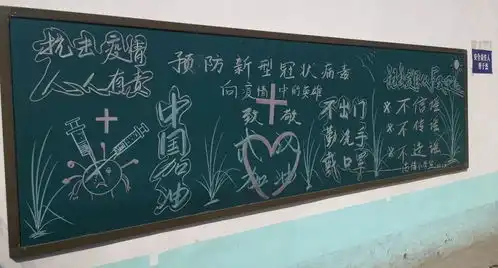 抗击疫情
人人有责
中国加油
预防新型冠状病毒
向疫情中的英雄
致敬
武汉
加油
不出门
勤洗手
戴口罩
不信谣
不传谣
不造谣